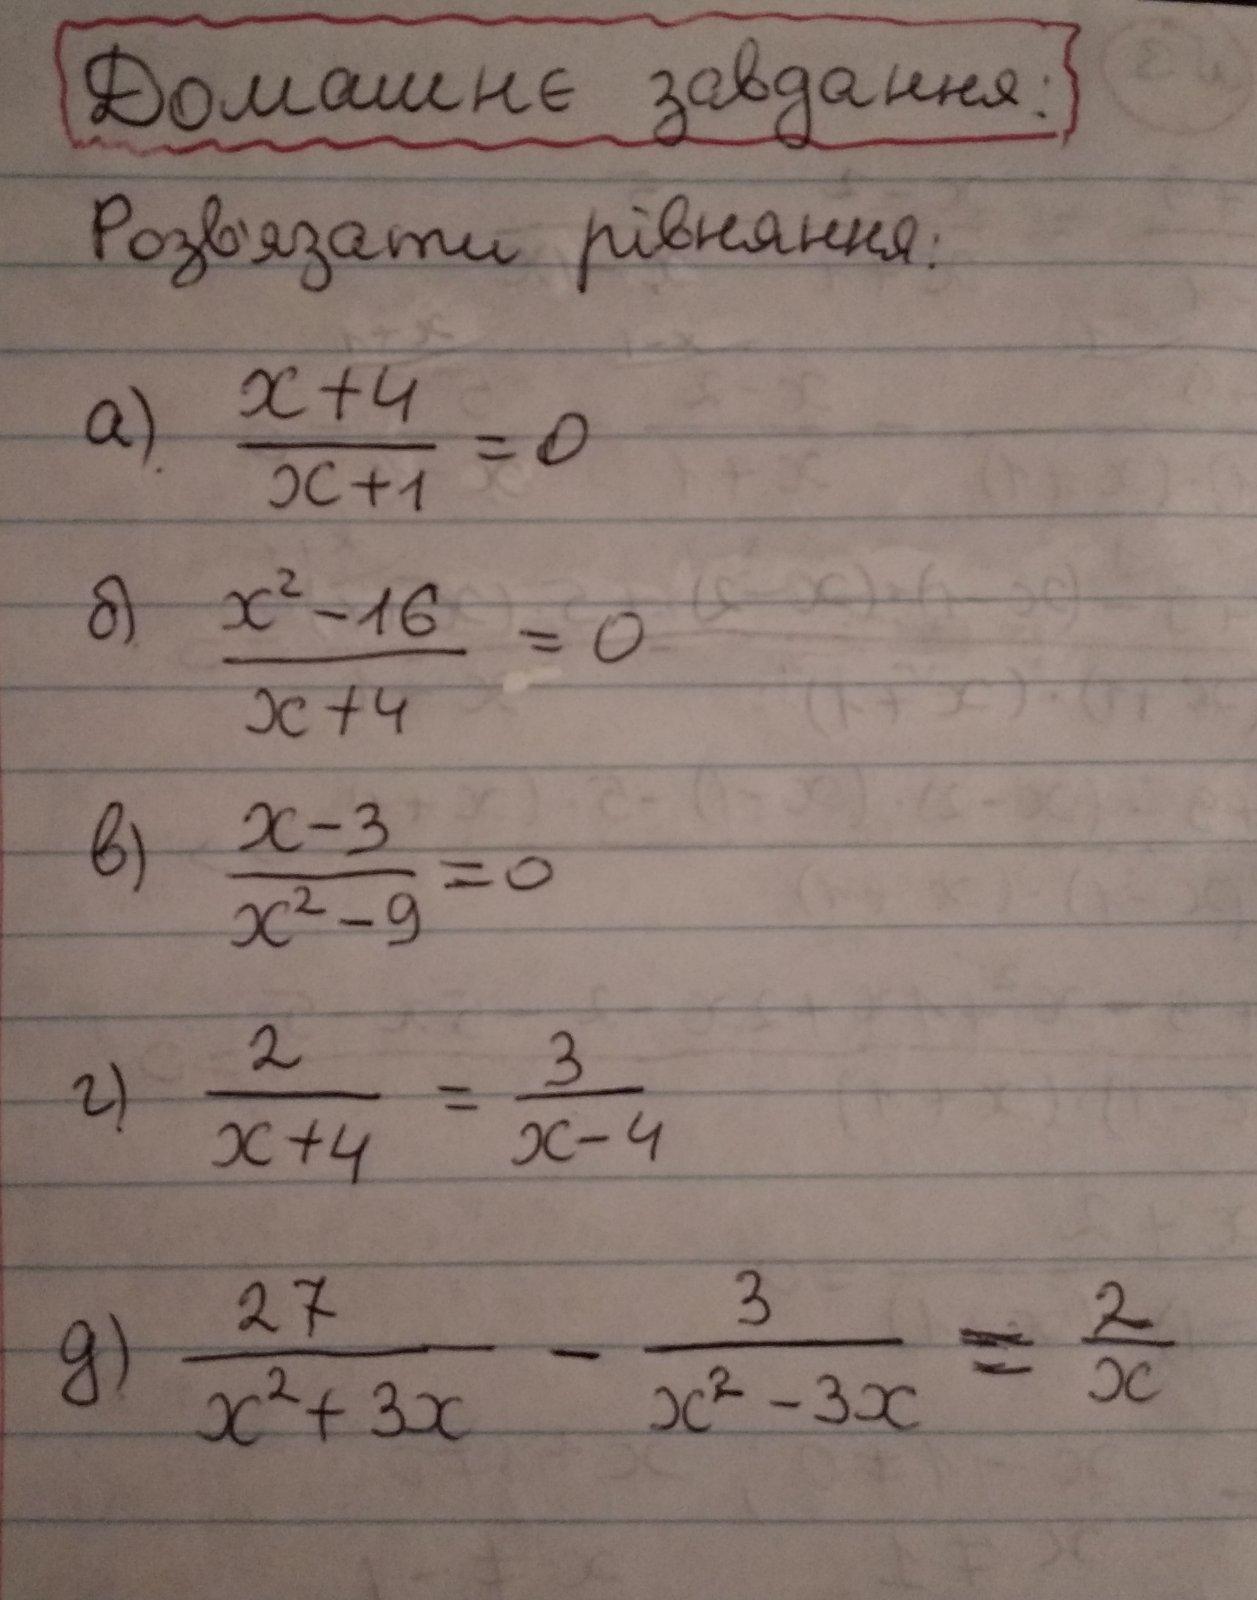 Домашнє завдання:
Розв'язати рівняння:
а) x+4 / x+1 = 0
б) x² - 16 / x+4 = 0
в) x-3 / x² - 9 = 0
г) 2 / x+4 = 3 / x-4
д) 27 / x² + 3x - 3 / x² - 3x = 2 / x